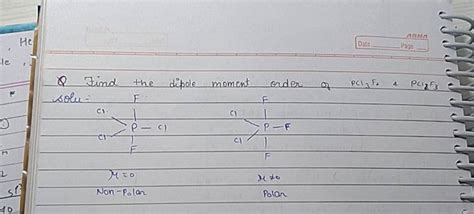 He
Date Page
le,
Q Find the dipole moment order of PCl3F2 & PCl2F3
solu:-
F F
Cl Cl
P — Cl P — F
Cl Cl
F F
μ=0 μ≠0
Non-Polar Polar